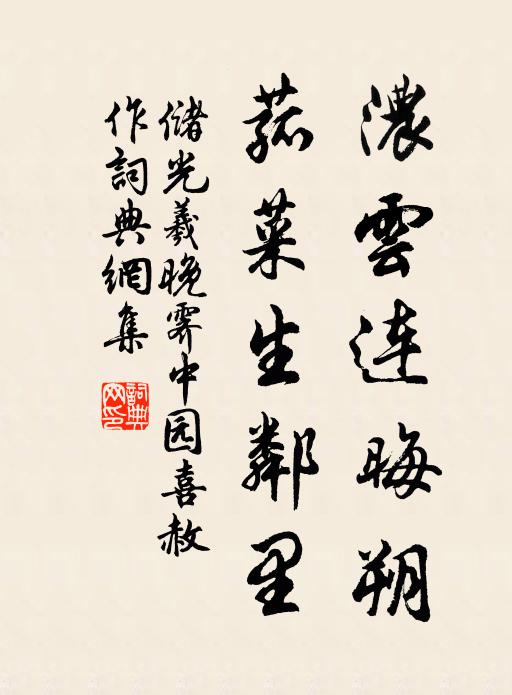 濃雲连晦朔
菰菜生鄰里
儲光羲晚霽中园喜赦
作詞典網集
詞典網印